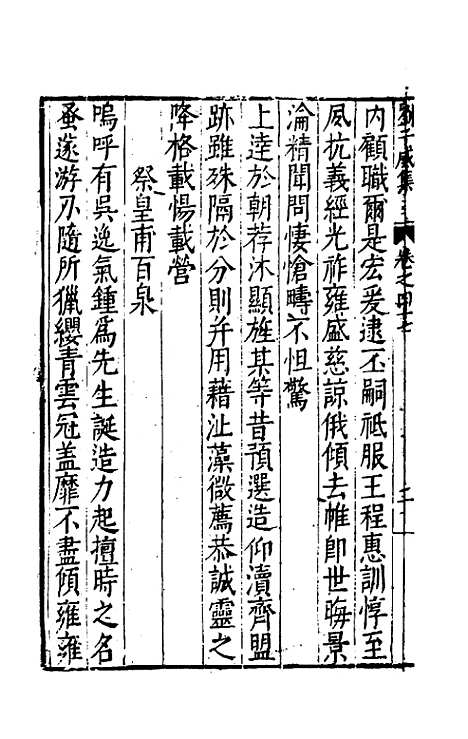 劉子威集
卷之四十七
内顧職爾是宏爰逮丕嗣祇服王程惠訓惇至
夙抗義經光祚雍盛慈諒俄傾去帷即世晦景
淪精聞問悽愴疇不怛驚
上逹於朝荐沐顯旌某等昔預選造仰瀆齊盟
跡雖殊隔於分則并用藉沚藻微薦恭誠靈之
降格載惕載營
祭皇甫百泉
嗚呼有吳逸氣鍾爲先生誕造力起擅時之名
蚤遂游刃隨所獵纓青雲冠盖靡不盡傾雍雍